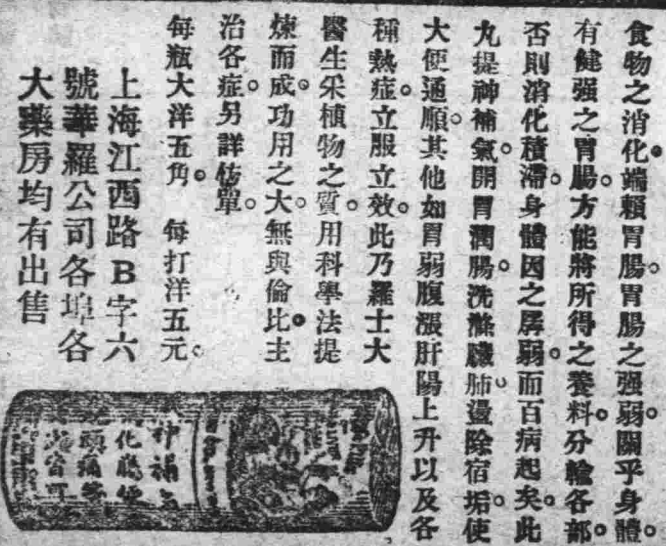 食物之消化。端賴胃腸。胃腸之强弱。關乎身體。
有健强之胃腸。方能將所得之養料。分輸各部。
否則消化積滯。身體因之孱弱。而百病起矣。此
丸提神補氣。開胃潤腸。洗滌臟肺。盪除宿垢。使
大便通順。其他如胃弱腹漲肝陽上升以及各
種熱症。立服立效。此乃羅士大
醫生采植物之質。用科學法提
煉而成。功用之大。無與倫比。主
治各症。另詳仿單。
每瓶大洋五角。 每打洋五元。
上海江西路B字六
號華羅公司各埠各
大藥房均有出售
神補氣
化腸便
頭痛等